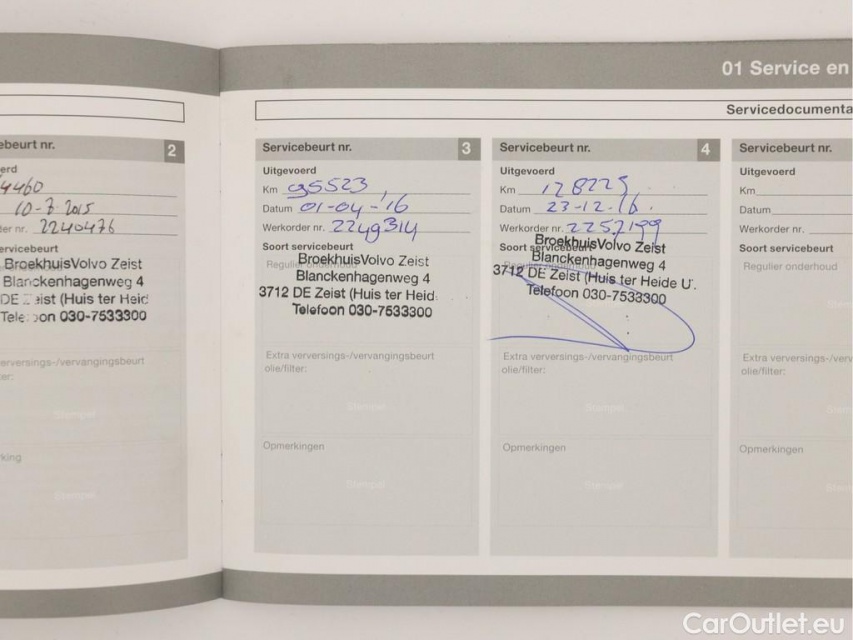 01 Service en
Servicedocumenta
ebeurt nr. 2
erd
4460
10-7-2015
der nr. 2240476
ervicebeurt
BroekhuisVolvo Zeist
Blanckenhagenweg 4
DE Zeist (Huis ter Heid
Telefoon 030-7533300
erversings-/vervangingsbeurt
er:
Stempel
king
Stempel
Servicebeurt nr. 3
Uitgevoerd
Km 95523
Datum 01-04-'16
Werkorder nr. 2249314
Soort servicebeurt
Regulier onderhoud
BroekhuisVolvo Zeist
Blanckenhagenweg 4
3712 DE Zeist (Huis ter Heid
Telefoon 030-7533300
Extra verversings-/vervangingsbeurt
olie/filter:
Stempel
Opmerkingen
Stempel
Servicebeurt nr. 4
Uitgevoerd
Km 128225
Datum 23-12-'16
Werkorder nr. 2257199
Soort servicebeurt
BroekhuisVolvo Zeist
Blanckenhagenweg 4
3712 DE Zeist (Huis ter Heide U.
Telefoon 030-7533300
Extra verversings-/vervangingsbeurt
olie/filter:
Stempel
Opmerkingen
Stempel
Servicebeurt nr.
Uitgevoerd
Km
Datum
Werkorder nr.
Soort servicebeurt
Regulier onderhoud
Extra verversings-/verv
olie/filter:
Opmerkingen
CarOutlet.eu